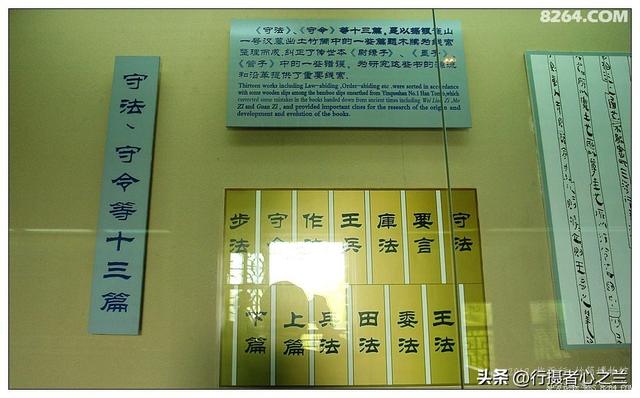 8264.COM
《守法》、《守令》等十三篇,是以据银雀山
一号汉墓出土竹简中的一些篇题木牍为线索
整理而成,纠正了传世本《尉缭子》、《墨子》、
《管子》中的一些错误,为研究这些书的源流
和沿革提供了重要线索.
Thirteen works including Law-abiding ,Order-abiding etc .were sorted in accordance
with some wooden slips among the bamboo slips unearthed from Yinqueshan No.1 Han Tomb,which
corrected some mistakes in the books handed down from ancient times including Wei Liao Zi ,Mo
Zi and Guan Zi , and provided important clues for the research of the origin and
development and evolution of the books.
守法、守令等十三篇
守法
要言
库法
王兵
作法
守令
步法
王法
委法
田法
兵法
上篇
下篇
头条 @行摄者心之兰